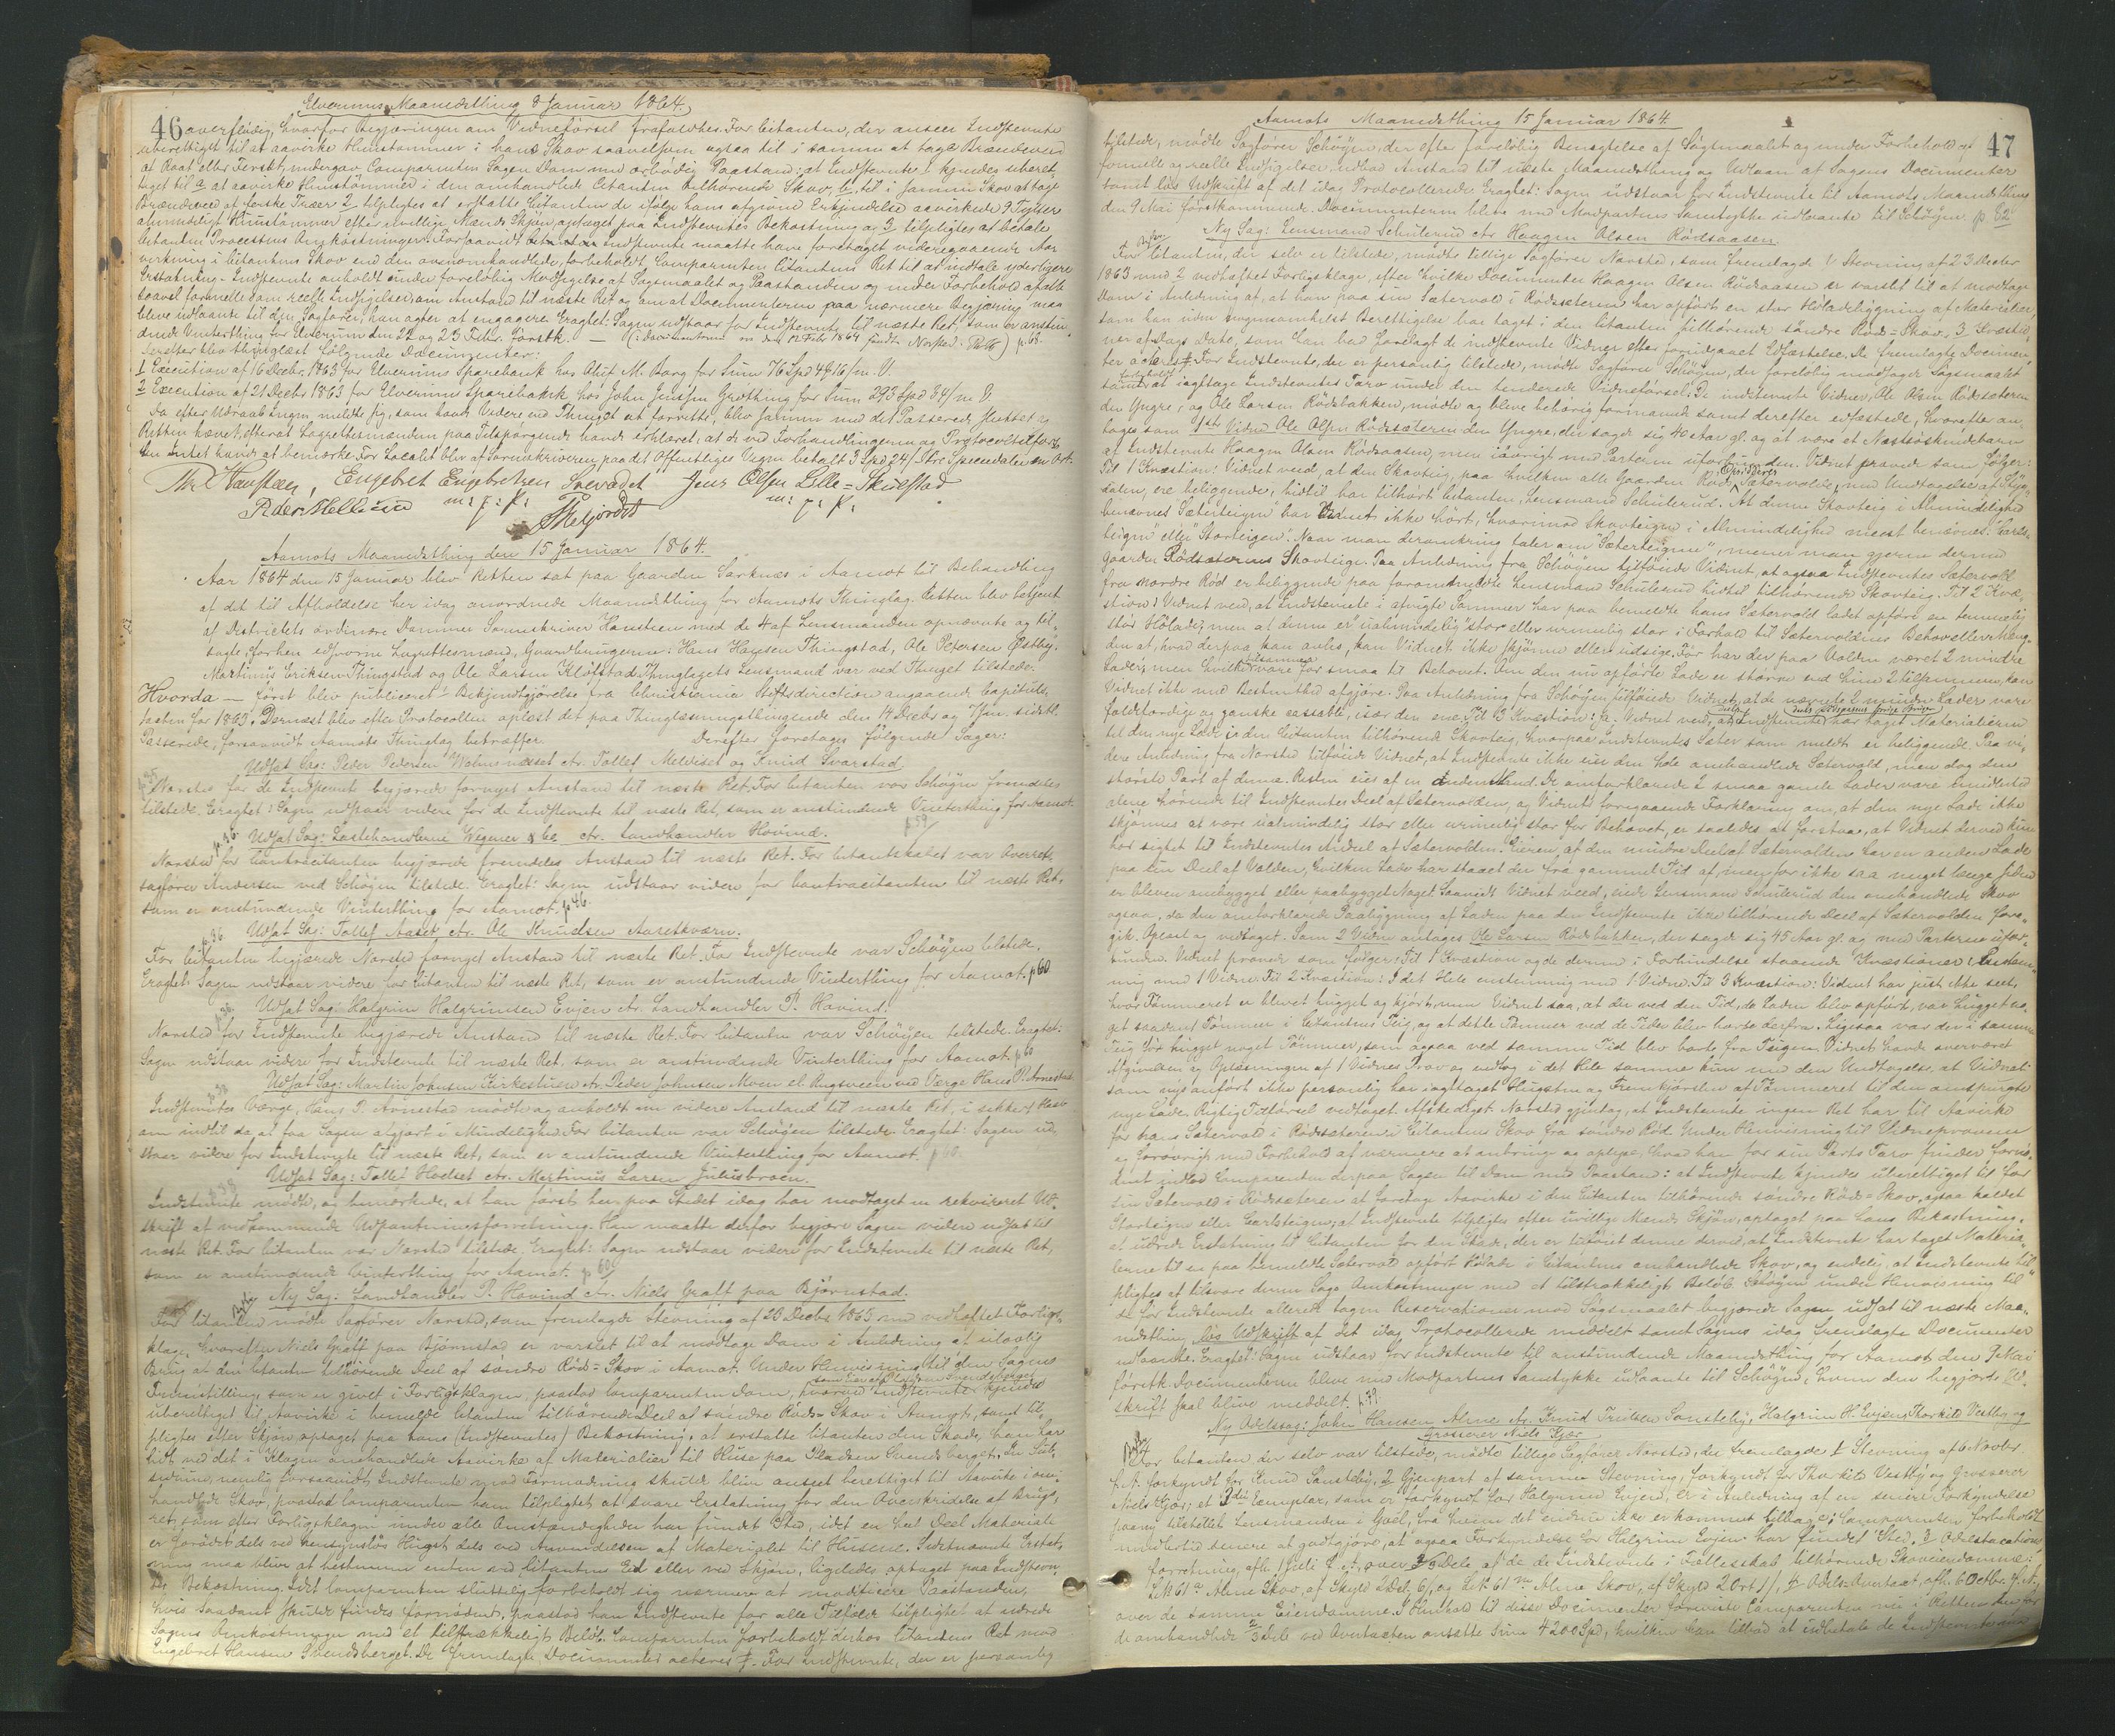 Elverums Maanedsthing 8 Januar 1864.
46 overflødig, hvorfor Begjæringen om Vidneførsel frafaldtes. For Citanten, der anseer Indstevnte
uberettiget til at aavirke Huustømmer i hans Skov saavelsom ogsaa til i samme at tage Brændeved
at Raat eller Ferskt, undergav Comparenten Sagen Dom med ærbødig Paastand: at Indstevnte 1 kjendes uberet-
tiget til a, at aavirke Huustømmer i den omhandlede Citanten tilhørende Skov, b, til i samme Skov at tage
Brændeved af ferske Træer 2 tilpligtes at erstatte Citanten de ifølge hans egen Erkjendelse aavirkede 9 Tylter
almindeligt Huustømmer efter uvillige Mænds Skjøn optaget paa Indstevntes Bekostning og 3 tilpligtes at betale
Citanten Processens Omkostninger. Forsaavidt Indstevnte maatte have foretaget videregaaende Aa-
virkning i Citantens Skov end den ovenomhandlede, forbeholdt Comparenten Citantens Ret til at indtale yderligere
Erstatning. Indstevnte anholdt under foreløbig Modsigelse af Sagsmaalet og Paastanden og under Forbehold af alle
saavel formelle som reelle Indsigelser, om Anstand til næste Ret og om at Documenterne paa nærmere Begjæring maa
blive udlaante til den Sagfører, han agter at engagere. Eragtet: Sagen udstaar for Indstevnte til næste Ret, som er anstun-
dende Vinterthing for Elverum den 22 og 23 Febr. førstk. — p. 68.
Derefter blev thinglæst følgende Documenter:
1 Execution af 16 Decbr. 1863 for Elverums Sparebank hos Oluf M. Borg for Sum 76 Spd 49 16/ m. V.
2 Execution af 21 Decbr 1863 for Elverums Sparebank hos John Jensen Grøthing for Sum 293 Spd 84/ m V.
Da efter Udraab Ingen meldte sig, som havde Videre ved Thinget at forrette, blev samme med det Passerede sluttet og
Retten hævet, efterat Lagrettesmændene paa Tilspørgende havde erklæret, at de ved Forhandlingerne og Protocoltilførs-
len Intet havde at bemærke. For Localet blev af Sorenskriveren paa det Offentliges Vegne betalt 3 Spd 24/ Tre Speciedaler en Ort.
Engebret Engebretsen Sorvadet Jens Olsen Lille-Skulstad
m: f: P: m: f: P:
Aamots Maanedsthing den 15 Januar 1864.
Aar 1864 den 15 Januar blev Retten sat paa Gaarden Sorknæs i Aamot til Behandling
af det til Afholdelse her idag anordnede Maanedsthing for Aamots Thinglag. Retten blev betjent
af Districtets ordinære Dommer Sorenskriver Hansteen med de 4 af Lensmanden opnævnte og til-
sagte, forhen edsvorne Lagrettesmænd, Gaardbrugerne: Hans Hansen Thingstad, Ole Petersen Østby,
Martinus Eriksen Thingstad og Ole Larsen Kløfstad. Thinglagets Lensmand var ved Thinget tilstede.
Hvorda — først blev publiceret Bekjendtgjørelse fra Christiania Stiftsdirection angaaende Capitels-
taxten for 1863. Dernæst blev efter Protocollen oplæst det paa Thinglæsningsthingene den 14 Decbr og 7 Jan. sidstl.
Passerede, forsaavidt Aamots Thinglag betræffer. Derefter foretoges følgende Sager:
Udsat Sag: Peder Pedersen Holmsnæset ctr. Tollef Meldiset og Knud Svarstad.
Norsted for de Indstevnte begjærede fornyet Anstand til næste Ret. For Citanten var Schøyen fremdeles
tilstede. Eragtet: Sagen udstaar videre for de Indstevnte til næste Ret, som er anstundende Vinterthing for Aamot. p. 59
Udsat Sag: Lastehandlerne Wegner & Co ctr. Landhandler Hovind.
Norsted for Contracitanten begjærede fremdeles Anstand til næste Ret. For Citantskabet var Overrets-
sagfører Andersen ved Schøyen tilstede. Eragtet: Sagen udstaar videre for Contracitanten til næste Ret,
som er anstundende Vinterthing for Aamot. p. 46.
Udsat Sag: Tollef Aaset ctr. Ole Knudsen Aasetkværn.
For Citanten begjærede Norsted fornyet Anstand til næste Ret. For Indstevnte var Schøyen tilstede.
Eragtet: Sagen udstaar videre for Citanten til næste Ret, som er anstundende Vinterthing for Aamot. p 60
Udsat Sag: Halgrim Halgrimsen Evjen ctr. Landhandler P. Hovind.
Norsted for Indstevnte begjærede Anstand til næste Ret. For Citanten var Schøyen tilstede. Eragtet:
Sagen udstaar videre for Indstevnte til næste Ret, som er anstundende Vinterthing for Aamot. p 60
Udsat Sag: Martin Johnsen Kirkestuen ctr. Peder Johnsen Moen el. Rugsveen ved Værge Hans P. Arnestad.
Indstevntes Værge, Hans P. Arnestad mødte og anholdt om videre Anstand til næste Ret, i sikkert Haab
om indtil da, at faa Sagen afgjort i Mindelighed. For Citanten var Schøyen tilstede. Eragtet: Sagen ud-
staar videre for Indstevnte til næste Ret, som er anstundende Vinterthing for Aamot. p 60.
Udsat Sag: Tollef Hovdset ctr. Martinus Larsen Juliusbroen.
Indstevnte mødte, og bemærkede, at han først her paa Stedet idag har modtaget en rekvireret Ud-
skrift af vedkommende Udpantningsforretning. Han maatte derfor begjære Sagen videre udsat til
næste Ret. For Citanten var Norsted tilstede. Eragtet: Sagen udstaar videre for Indstevnte til næste Ret,
som er anstundende Vinterthing for Aamot. p 60
Ny Sag: Landhandler P. Hovind ctr. Niels Graff paa Bjørnstad.
For Citanten mødte Sagfører Norsted, som fremlagde Stevning af 23 Decbr 1863 med vedhæftet Forligs-
klage, hvorefter Niels Graff paa Bjørnstad er varslet til at modtage Dom i Anledning af ulovlig
Brug af den Citanten tilhørende Deel af søndre Rød-Skov i Aamot. Under Henvisning til den Sagens
Fremstilling, som er givet i Forligsklagen, paastod Comparenten Dom, hvorved Indstevnte kjendes
uberettiget til Aavirke i bemeldte Citanten tilhørende Deel af søndre Røds-Skov i Aamot, samt til-
pligtes efter Skjøn, optaget paa hans (Indstevntes) Bekostning, at erstatte Citanten den Skade, han har
lidt ved det i Klagen omhandlede Aavirke af Materialier til Huse paa Pladsen Svendsberget. In Sub-
sidium, nemlig forsaavidt Indstevnte mod Formodning skulde blive anseet berettiget til Aavirke i om-
handlede Skov, paastod Comparenten ham tilpligtet at svare Erstatning for den Overskridelse af Brugs-
ret, som efter Forligsklagen under alle Omstændigheder har fundet Sted, idet en heel Deel Materiale
er forødt dels ved hensynsløs Hugst dels ved Anvendelsen af Materialet til Husene. Sidstnævnte Erstat-
ning maa blive at bestemme enten ved Citantens Ed eller ved Skjøn, ligeledes optaget paa Indstevn-
tes Bekostning. Idet Comparenten sluttelig forbeholdt sig nærmere at modificere Paastanden,
hvis Saadant skulde findes fornødent, paastod han Indstevnte for alle Tilfælde tilpligtet at udrede
Sagens Omkostninger med et tilstrækkeligt Beløb. Comparenten forbeholdt derhos Citantens Ret mod
Engebret Hansen Svendsberget. De fremlagte Documenter acteres. For Indstevnte, der er personlig
Aamots Maanedsthing 15 Januar 1864.
47
tilstede, mødte Sagfører Schøyen, der efter foreløbig Benægtelse af Søgsmaalet og under Forbehold af
formelle og reelle Indsigelser, udbad Anstand til næste Maanedsthing og Udlaan af Sagens Documenter
samt løs Udskrift af det idag Protocollerede. Eragtet: Sagen udstaar for Indstevnte til Aamots Maanedsthing
den 9 Mai førstkommende. Documenterne bleve med Modpartens Samtykke udlaante til Schøyen. p. 62
Ny Sag: Lensmand Schulerud ctr Haagen Olsen Rødsaasen.
For Citanten, der selv er tilstede, mødte tillige Sagfører Norsted, som fremlagde 1 Stevning af 23 Decbr
1863 med 2 vedhæftet Forligsklage, efter hvilke Documenter Haagen Olsen Rødsaasen er varslet til at modtage
Dom i Anledning af, at han paa sin Sætervold i Rødsæteren har opført en stor Høladebygning af Materialier,
som han uden nogensomhelst Berettigelse har taget i den Citanten tilhørende søndre Rød-Skov. 3 Kvæstio-
ner af Dags Dato, som han bad forelagt de indstevnte Vidner efter forudgaaet Edfæstelse. De fremlagte Documen-
ter acteres. For Indstevnte, der er personlig tilstede, mødte Sagfører Schøyen, der foreløbig modsiger Sagsmaalet
samt forbeholdt at iagttage Indstevntes Tarv under den tenderede Vidneførsel. De indstevnte Vidner, Ole Olsen Rødsæteren
den Yngre, og Ole Larsen Rødsbakken, mødte og bleve behørig formanede samt derefter edfæstede, hvorefter an-
toges som 1ste Vidne Ole Olsen Rødsæteren den Yngre, der sagde sig 40 Aar gl. og at være et Næstsødskendebarn
af Indstevnte Haagen Olsen Rødsaasen, men iøvrigt med Parterne uforbunden. Vidnet provede som følger:
Til 1 Kvæstion: Vidnet veed, at den Skovteig, paa hvilken alle Gaarden Røds Opsidderes Sætervolde, med Undtagelse af Styg-
dalen, ere beliggende, hidtil har tilhørt Citanten, Lensmand Schulerud. At denne Skovteig i Almindelighed
benævnes Sæterteigen har Vidnet ikke hørt, hvorimod Skovteigen i Almindelighed meest benævnes "Carls-
teigen" eller "Storteigen". Naar man deromkring taler om "Sæterteigene", mener man gjerne dermed
Gaarden Rødsæterens Skovteige. Paa Anledning fra Schøyen tilføiede Vidnet, at ogsaa Indstevntes Sætervold
fra nordre Rød er beliggende paa foromrørte Lensmand Schulerud hidtil tilhørende Skovteig. Til 2 Kvæ-
stion: Vidnet veed, at Indstevnte i afvigte Sommer har paa bemeldte hans Sætervold ladet opføre en temmelig
stor Hølade; men at denne er "ualmindelig" stor eller urimelig stor i Forhold til Sætervoldens Behov eller Meng-
den af, hvad derpaa kan avles, kan Vidnet ikke skjønne eller udsige. Før har der paa Volden været 2 mindre
Lader; men hvilke tilsammen vare for smaa til Behovet. Om den nu opførte Lade er større end hine 2 tilsammen, kan
Vidnet ikke med Bestemthed afgjøre. Paa Anledning fra Schøyen tilføiede Vidnet, at de nævnte 2 mindre Lader vare
faldefærdige og ganske cassable, især den ene. Til 3 Kvæstion: Ja. Vidnet veed, at Indstevnte har taget Materialierne
til den nye Lade i den Citanten tilhørende Skovteig, hvorpaa Indstevntes Sæter som meldt er beliggende. Paa vi-
dere Anledning fra Norsted tilføiede Vidnet, at Indstevnte ikke eier den hele omhandlede Sætervold, men dog den
største Part af denne. Resten eies af en anden Mand. De omforklarede 2 smaa gamle Lader vare imidlertid
alene hørende til Indstevntes Deel af Sætervolden, og Vidnets foregaaende Forklaring om, at den nye Lade ikke
skjønnes at være ualmindelig stor eller urimelig stor for Behovet, er saaledes at forstaa, at Vidnet derved kun
har sigtet til Indstevntes Andeel af Sætervolden. Eieren af den mindre Deel af Sætervolden har en anden Lade
paa sin Deel af Volden, hvilken Lade har staaet der fra gammel Tid af, men for ikke saa meget længe siden
er bleven ombygget eller paabygget Noget. Saavidt Vidnet veed, eiede Lensmand Schulerud den omhandlede Skov
ogsaa, da den omforklarede Paabygning af Laden paa den Indstevnte ikke tilhørende Deel af Sætervolden fore-
gik. Oplæst og vedtaget. Som 2 Vidne antoges Ole Larsen Rødsbakken, der sagde sig 45 Aar gl. og med Parterne ufor-
bunden. Vidnet provede som følger: Til 1 Kvæstion og de dermed i Forbindelse staaende Kvæstioner: Enstem-
mig med 1 Vidne. Til 2 Kvæstion: I det Hele enstemmig med 1 Vidne. Til 3 Kvæstion: Vidnet har just ikke seet,
hvor Tømmeret er blevet hugget og kjørt, men Vidnet saa, at der ved den Tid, da Laden blev opført, var hugget no-
get saadant Tømmer i Citantens Teig, og at dette Tømmer ved de Tider blev borte derfra. Ligesaa var der i samme
Teig før hugget noget Tømmer, som ogsaa ved samme Tid blev borte fra Teigen. Vidnet havde overværet
Afgivelsen og Oplæsningen af 1 Vidnes Prov og endtog i det Hele samme kun med den Undtagelse, at Vidnet
som nys anført ikke personlig har iagttaget Hugsten og Fremkjørselen af Tømmeret til den omspurgte
nye Lade. Rigtig Tilførsel vedtaget. Afskediget. Norsted gjentog, at Indstevnte ingen Ret har til Aavirke
for hans Sætervold i Rødsæteren i Citantens Skov fra søndre Rød. Under Henvisning til Vidneprovene
og forøvrigt med Forbehold af nærmere at anbringe og oplyse, hvad han for sin Parts Tarv finder forno-
dent indlod Comparenten derpaa Sagen til Dom med Paastand: at Indstevnte kjendes uberettiget til for
sin Sætervold i Rødsæteren at foretage Aavirke i den Citanten tilhørende søndre Rød-Skov, ogsaa kaldet
Storteigen eller Carlsteigen, at Indstevnte tilpligtes efter uvillige Mænds Skjøn, optaget paa hans Bekostning,
at udrede Erstatning til Citanten for den Skade, der er tilføiet denne derved, at Indstevnte har taget Materia-
lerne til en paa bemeldte Sætervold opført Hølade i Citantens omhandlede Skov, og endelig, at Indstevnte til-
pligtes at tilsvare denne Sags Omkostninger med et tilstrækkeligt Beløb. Schøyen under Henvisning til
de for Indstevnte allerede tagne Reservationer mod Sagsmaalet begjærede Sagen udsat til næste Maa-
nedsthing, løs Udskrift af det idag Protocollerede meddelt samt Sagens idag fremlagte Documenter
udlaante. Eragtet: Sagen udstaar for Indstevnte til anstundende Maanedsthing for Aamot den 9 Mai
førstk. Documenterne bleve med Modpartens Samtykke udlaante til Schøyen, hvem den begjærte Ud-
skrift skal blive meddelt. p. 79.
Ny Odelssag: John Hansen Alme ctr. Knud Troelsen Sønsteby, Halgrim H. Evjen, Thorkild Vestby og
Grosserer Niels Kjær
For Citanten, der selv var tilstede, mødte tillige Sagfører Norsted, der fremlagde 1 Stevning af 6 Novbr
f. A. forkyndt for Knud Sønsteby, 2 Gjenpart af samme Stevning, forkyndt for Thorkild Vestby og Grosserer
Niels Kjær; et 3die Exemplar, som er forkyndt for Halgrim Evjen, er i Anledning af en senere Forkyndelse
paany tilstillet Lensmanden i Gvel, fra hvem det endnu ikke er kommet tilbage; Comparenten forbeholdt
imidlertid senere at godtgjøre, at ogsaa Forkyndelse for Halgrim Evjen har fundet Sted. 3 Odelstaxations-
forretning, afh. 1 Juli f. A. over 2/3 Dele af de de Indstevnte i Fællesskab tilhørende Skoveiendomme:
L.N. 61a Alme Skov, af Skyld 2 Del. 6/, og L.N. 61 Alme Skov, af Skyld 2 Ort 1/, 4 Odels-Overtaxt, afh. 6 Octbr. f. A.,
over de samme Eiendomme. I Henhold til disse Documenter foreviste Comparenten nu i Retten den for
de omhandlede 2/3 Dele ved Overtaxten ansatte Sum 4200 Spd, hvilken han tilbød at udbetale de Indstevnte